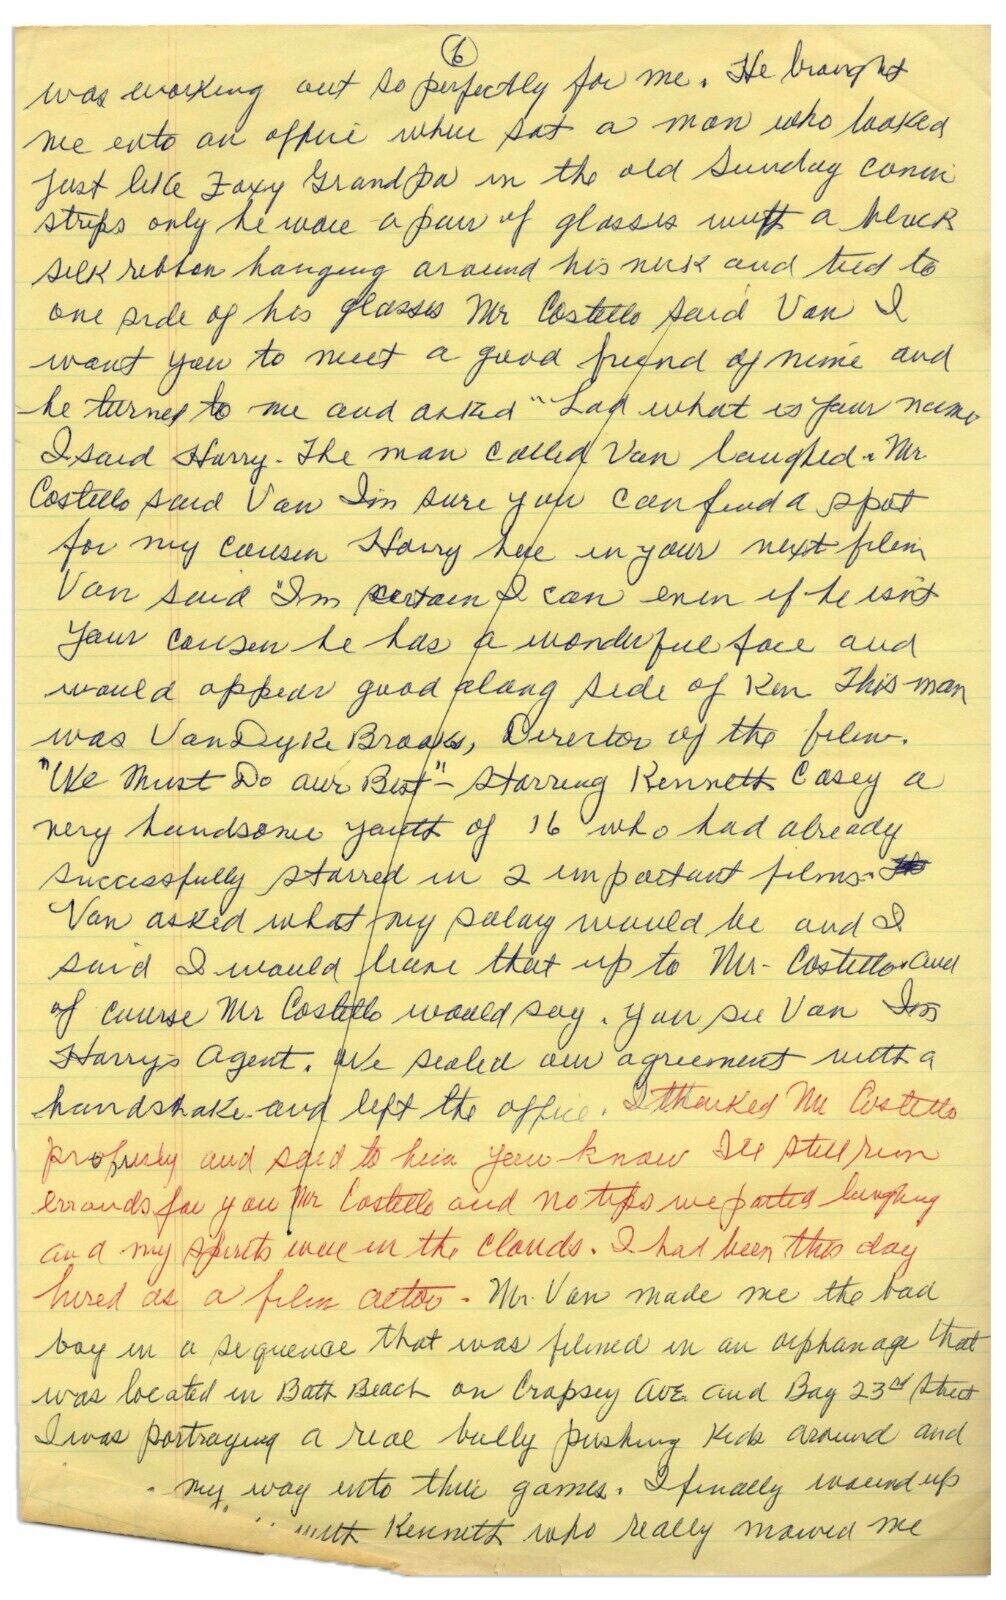 6
was working out so perfectly for me. He brought
me into an office where sat a man who looked
just like Foxy Grandpa in the old Sunday comic
strips only he wore a pair of glasses with a black
silk ribbon hanging around his neck and tied to
one side of his glasses Mr Costello said Van I
want you to meet a good friend of mine and
he turned to me and asked "Lad what is your name
I said Harry. The man called Van laughed. Mr
Costello said Van I'm sure you can find a spot
for my cousin Harry here in your next film
Van said "I'm certain I can even if he isn't
your cousin he has a wonderful face and
would appear good along side of Ken This man
was VanDyke Brooks, Director of the film.
"We Must Do our Best" - starring Kenneth Casey a
very handsome youth of 16 who had already
successfully starred in 2 important films.
Van asked what my salary would be and I
said I would leave that up to Mr. Costello and
of course Mr Costello would say. you see Van I'm
Harrys Agent. We sealed our agreement with a
handshake and left the office. I thanked Mr Costello
profusly and said to him you know I'll still run
errands for you Mr Costello and no tips we parted laughing
and my spirits were in the clouds. I had been this day
hired as a film actor. Mr. Van made me the bad
boy in a sequence that was filmed in an orphanage that
was located in Bath Beach on Cropsey Ave. and Bay 23rd Street
I was portraying a real bully pushing kids around and
my way into their games. I finally wound up
with Kenneth who really mowed me